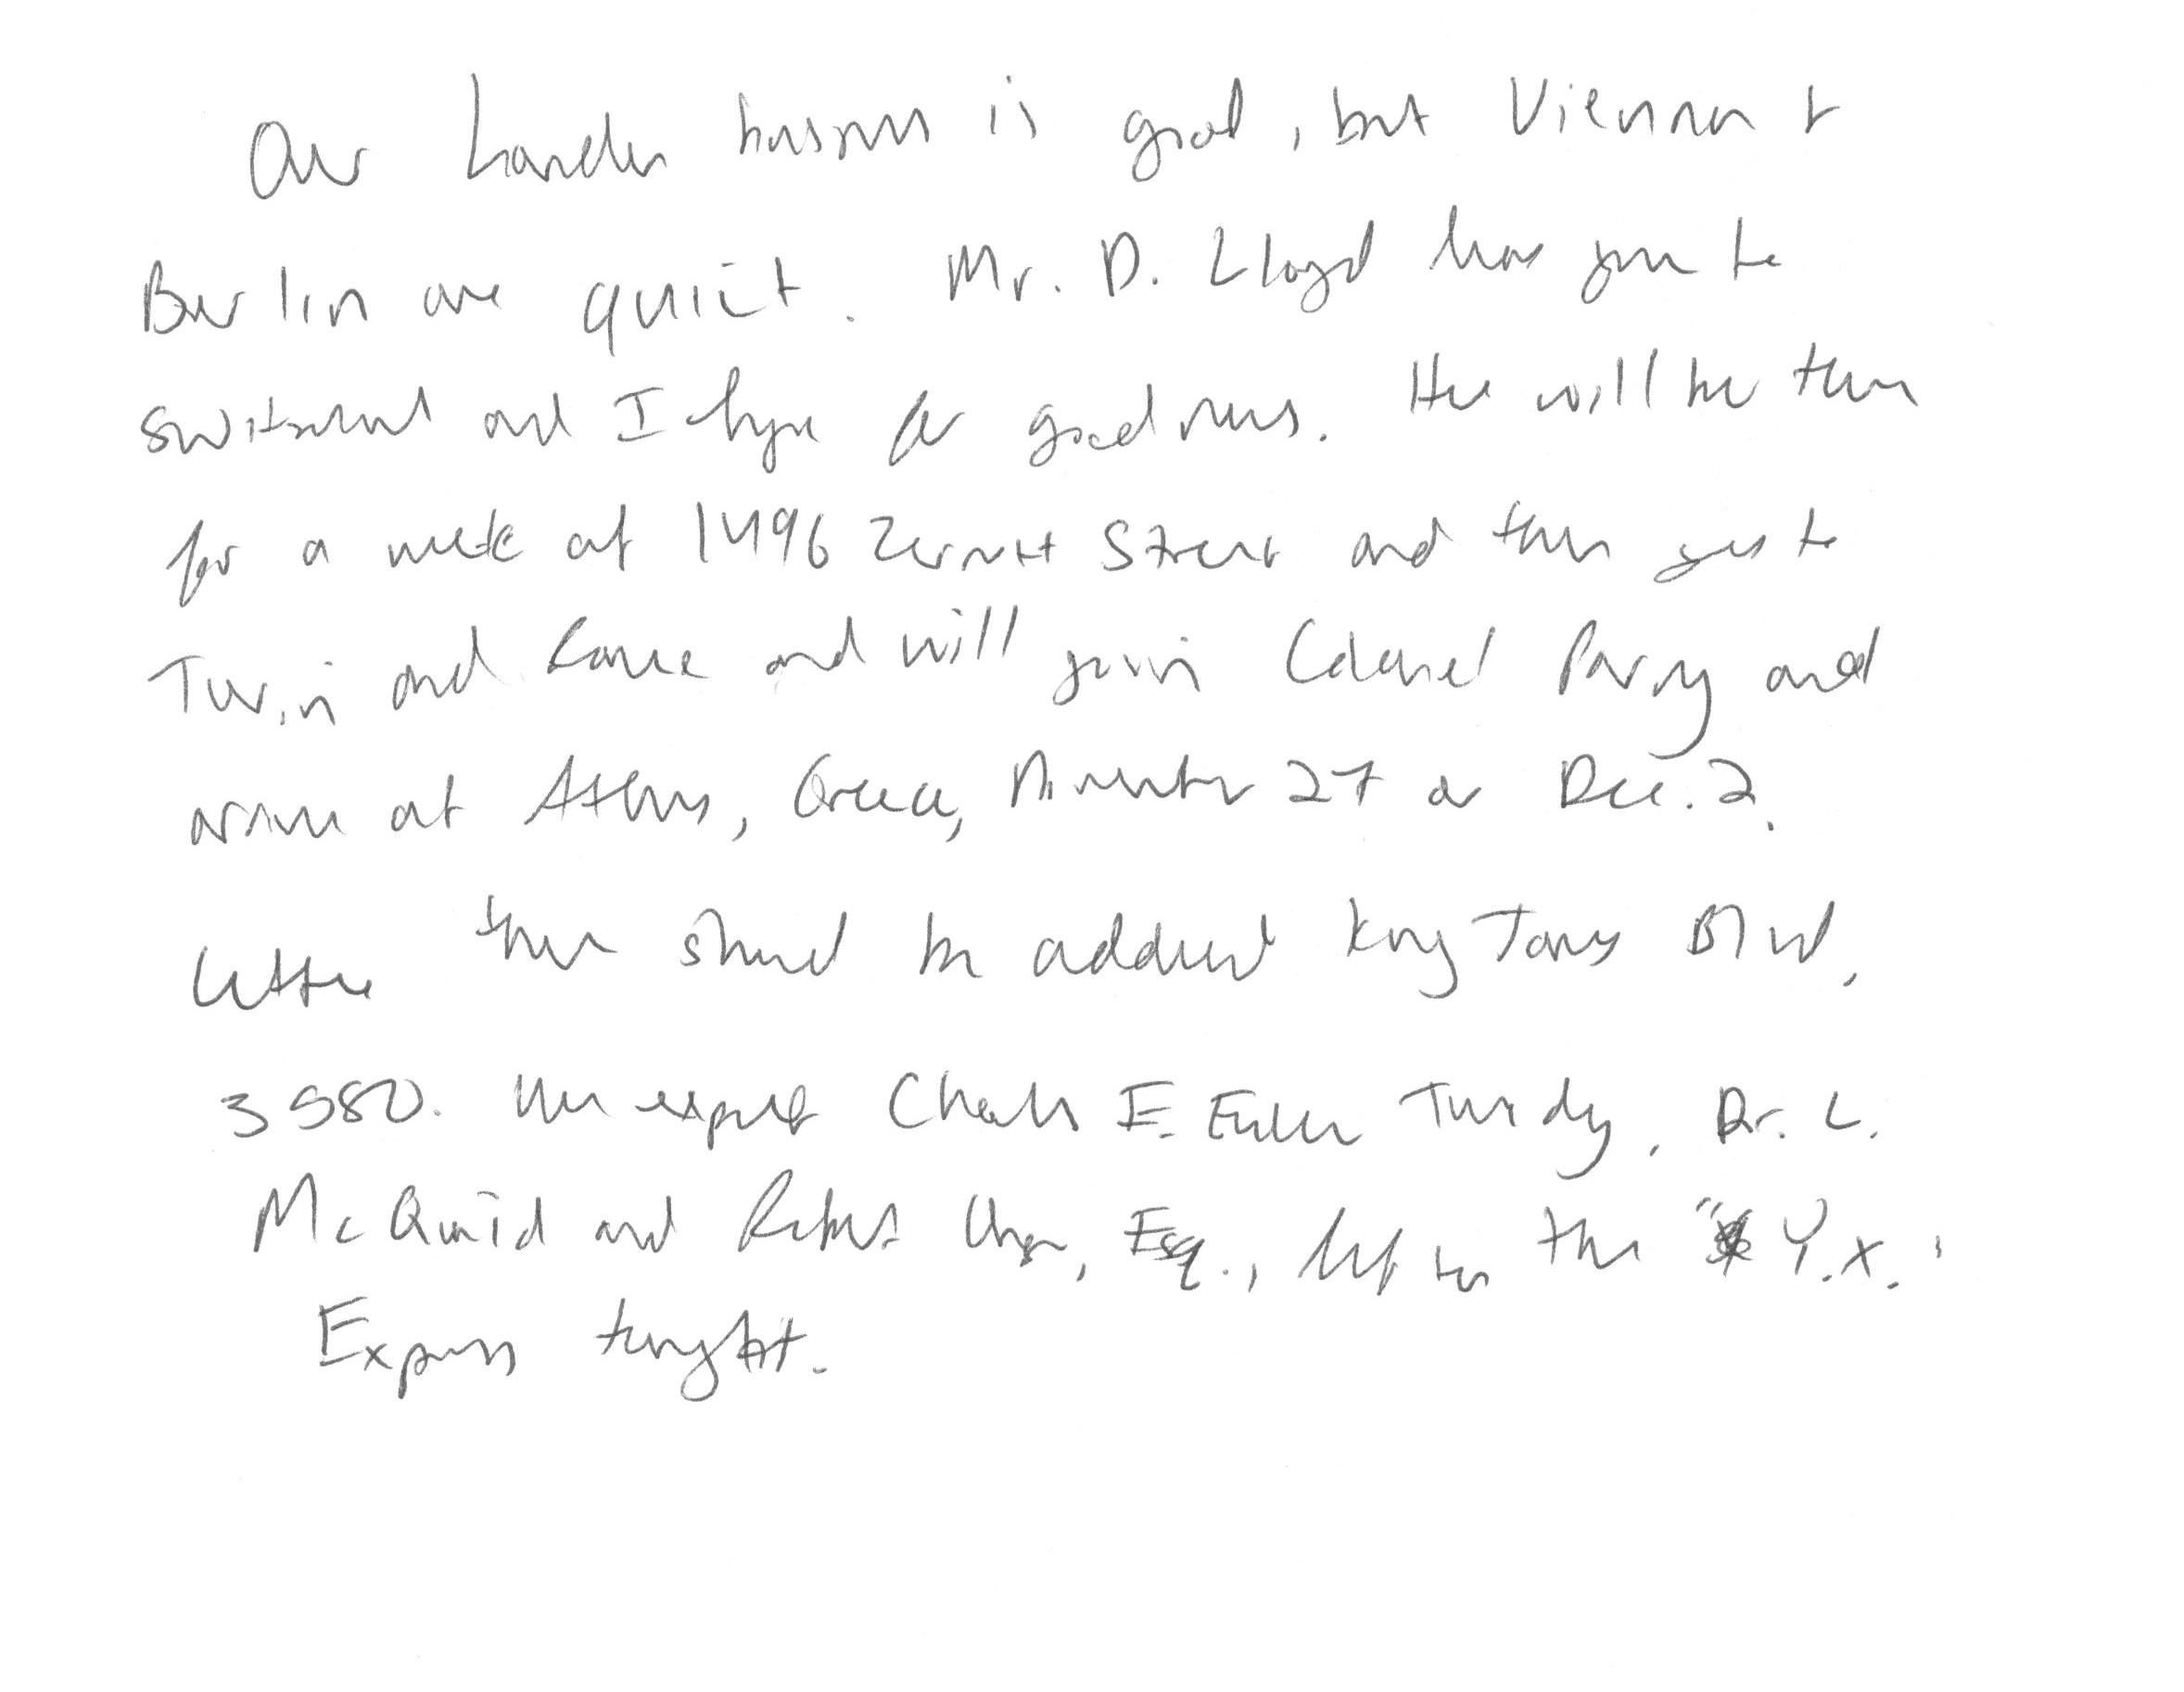 Our London business is good, but Vienna &
Berlin are quiet. Mr. D. Lloyd has gone to
Switzerland and I hope for good news. He will be there
for a week at 1496 Zermott Street and then goes to
Turin and Rome and will join Colonel Parry and
arrive at Athens, Greece, November 27 or Dec. 2.
Letters there should be addressed King James Blvd,
3580. We expect Charles E. Fuller Tuesday. Dr. L.
McQuaid and Robert Unger, Esq., left on the "Y.X."
Express tonight.